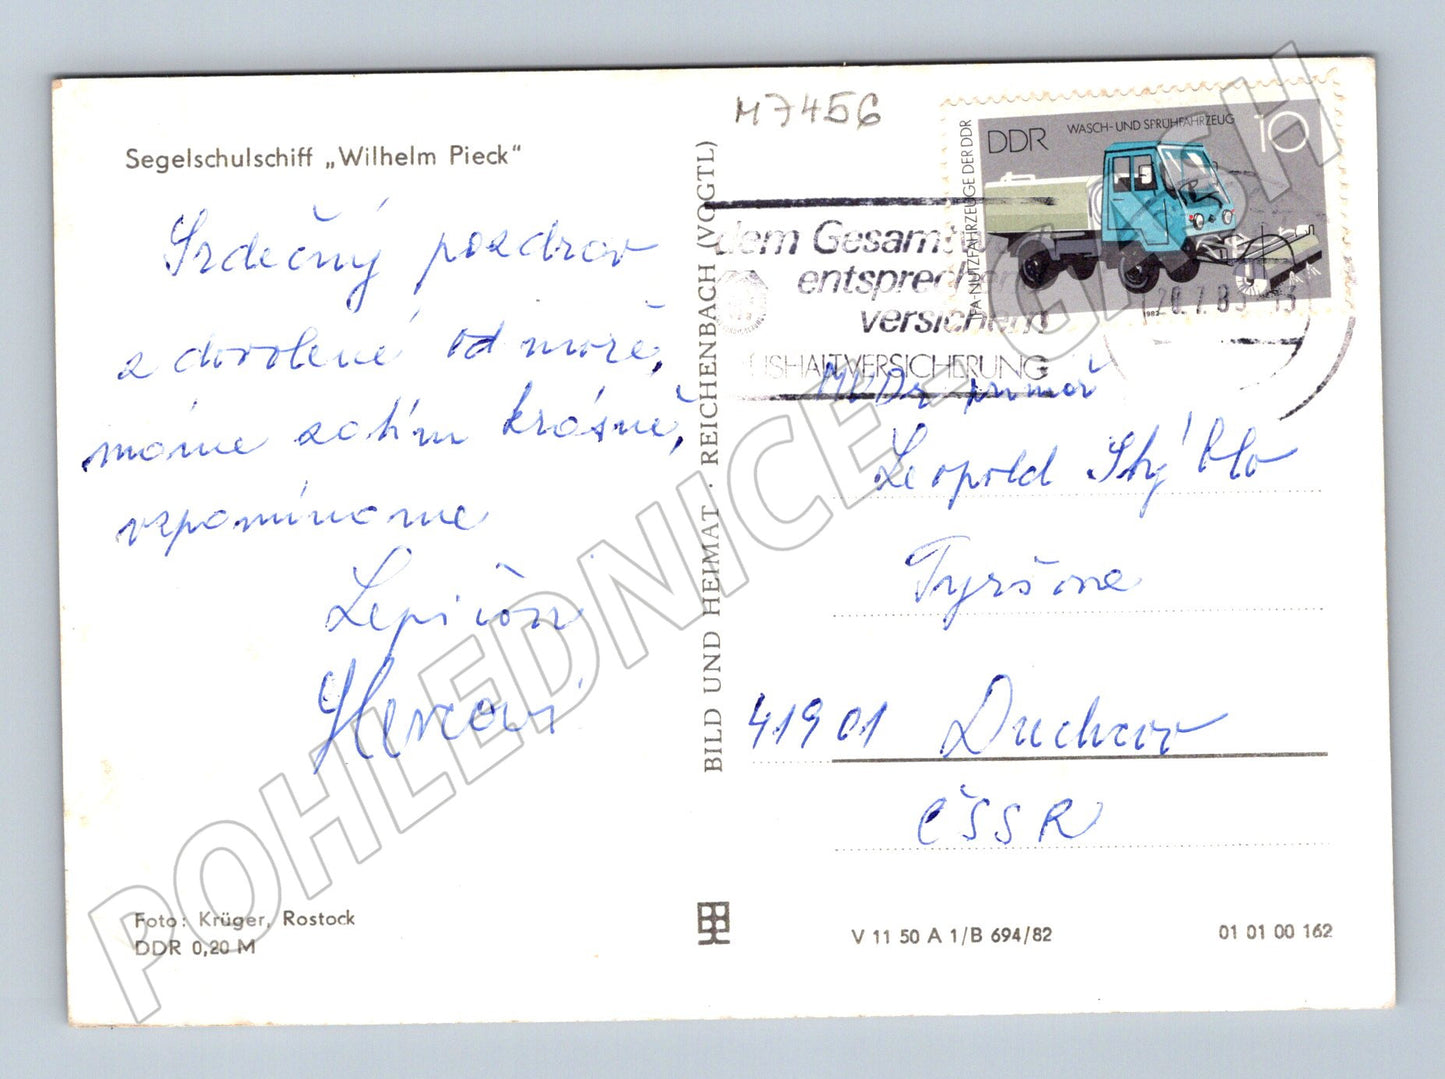 M7456
Segelschulschiff „Wilhelm Pieck“
Srdečný pozdrav
z dovolené od moře,
máme zatím krásně,
vzpomínáme
BILD UND HEIMAT · REICHENBACH (VOGTL)
DDR
WASCH- UND SPRÜHFAHRZEUG
10
IFA-NUTZFAHRZEUGE DER DDR
1982
dem
entsprechend
versichern
HAUSHALTVERSICHERUNG
MUDr primář
Leopold
Tyršova
41901 Duchcov
ČSSR
Foto: Krüger, Rostock
DDR 0,20 M
V 11 50 A 1/B 694/82
01 01 00 162
POHLEDNICE - GASH